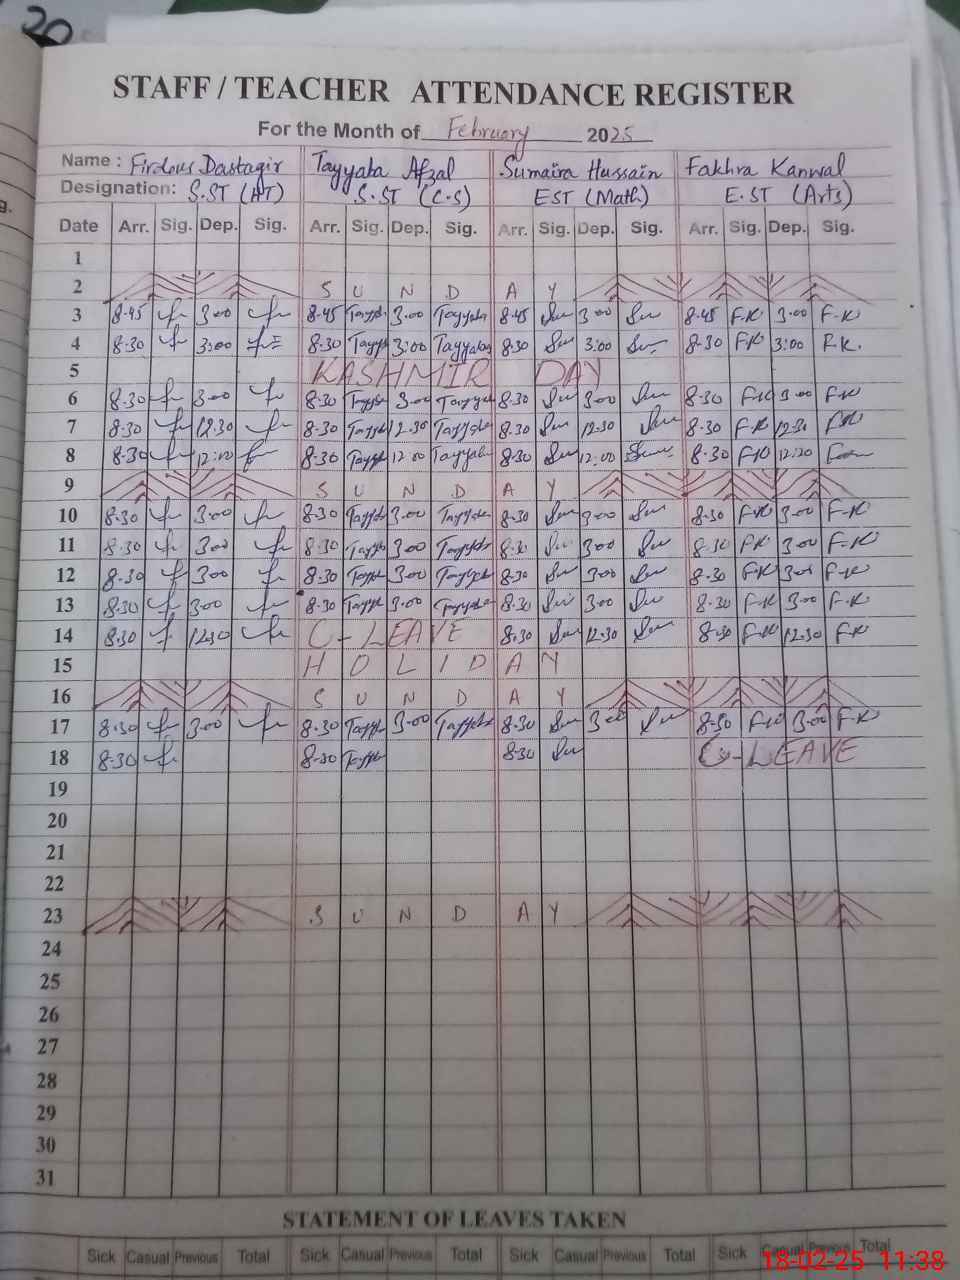 20
STAFF / TEACHER ATTENDANCE REGISTER
For the Month of February 2025
Name : Firdous Dastagir Tayyaba Afzal Sumaira Hussain Fakhra Kanwal
Designation: S.ST (AT) S.ST (C.S) EST (Math) E.ST (Arts)
g.
Date Arr. Sig. Dep. Sig. Arr. Sig. Dep. Sig. Arr. Sig. Dep. Sig. Arr. Sig. Dep. Sig.
1
2 S U N D A Y
3 8.45 3.00 8.45 3.00 8.45 3.00 8.45 F.K 3.00 F.K
4 8.30 3:00 8.30 3:00 8.30 3:00 8.30 F.K 3:00 F.K.
5 KASHMIR DAY
6 8.30 3.00 8.30 3.00 8.30 3.00 8.30 F.K 3.00 F.K
7 8.30 12.30 8.30 12.30 8.30 12.30 8.30 F.K 12.30 F.K
8 8.30 8.30 12.00 8.30 12:00 8.30 F.K
9 S U N D A Y
10 8.30 3.00 8.30 3.00 8.30 3.00 8.30 F.K 3.00 F.K
11 8.30 3.00 8.30 3.00 8.30 3.00 8.30 F.K 3.00 F.K
12 8.30 3.00 8.30 3.00 8.30 3.00 8.30 F.K 3.00 F.K
13 8.30 3.00 8.30 3.00 8.30 3.00 8.30 F.K 3.00 F.K
14 8.30 12.30 C-LEAVE 8.30 12.30 8.30 F.K 12.30 F.K
15 H O L I D A Y
16 S U N D A Y
17 8.30 3.00 8.30 3.00 8.30 3.00 8.30 F.K 3.00 F.K
18 8.30 8.30 8.30 C-LEAVE
19
20
21
22
23 S U N D A Y
24
25
26
27
28
29
30
31
STATEMENT OF LEAVES TAKEN
Sick Casual Previous Total Sick Casual Previous Total Sick Casual Previous Total Sick Casual Previous Total
18-02-25 11:38